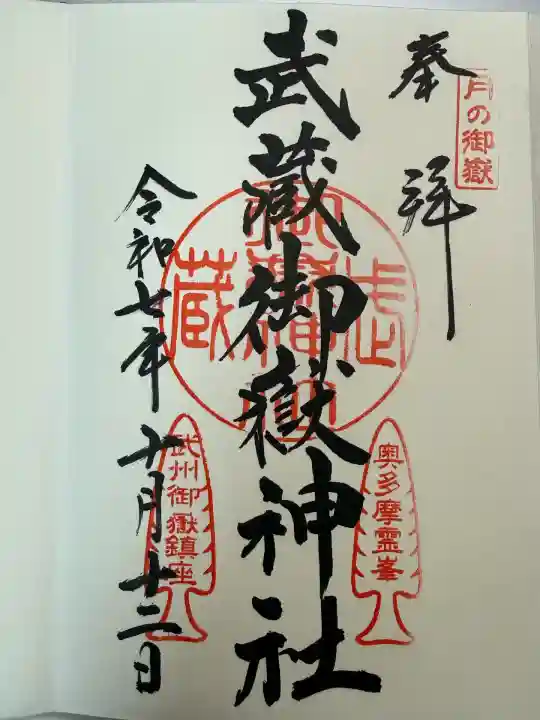 月の御嶽
奉拝
武蔵御嶽神社
奥多摩霊峯
令和七年十月十二日
武州御嶽鎮座